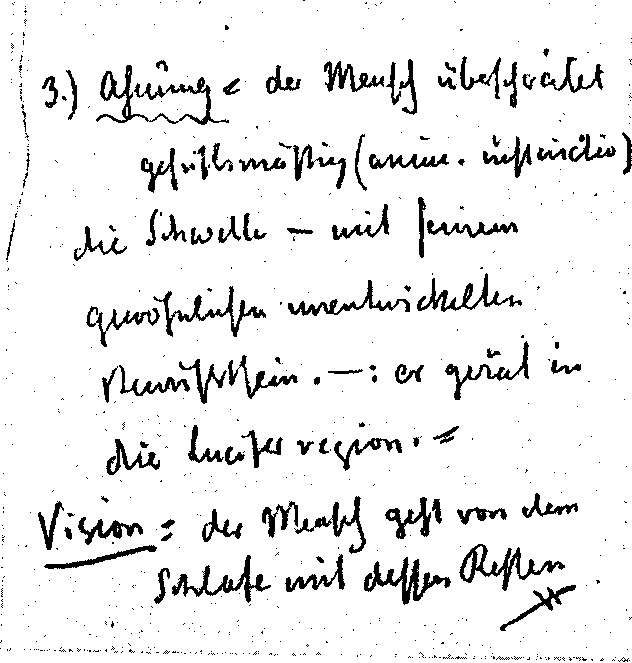 3.) Ahnung = der Mensch überschreitet
gefühlsmäßig (anim. instinctiv)
die Schwelle — mit seinem
gewöhnlichen unentwickelten
Bewußtsein. —: er gerät in
die Luciferregion. =
Vision = der Mensch geht von dem
Schlafe mit dessen Resten